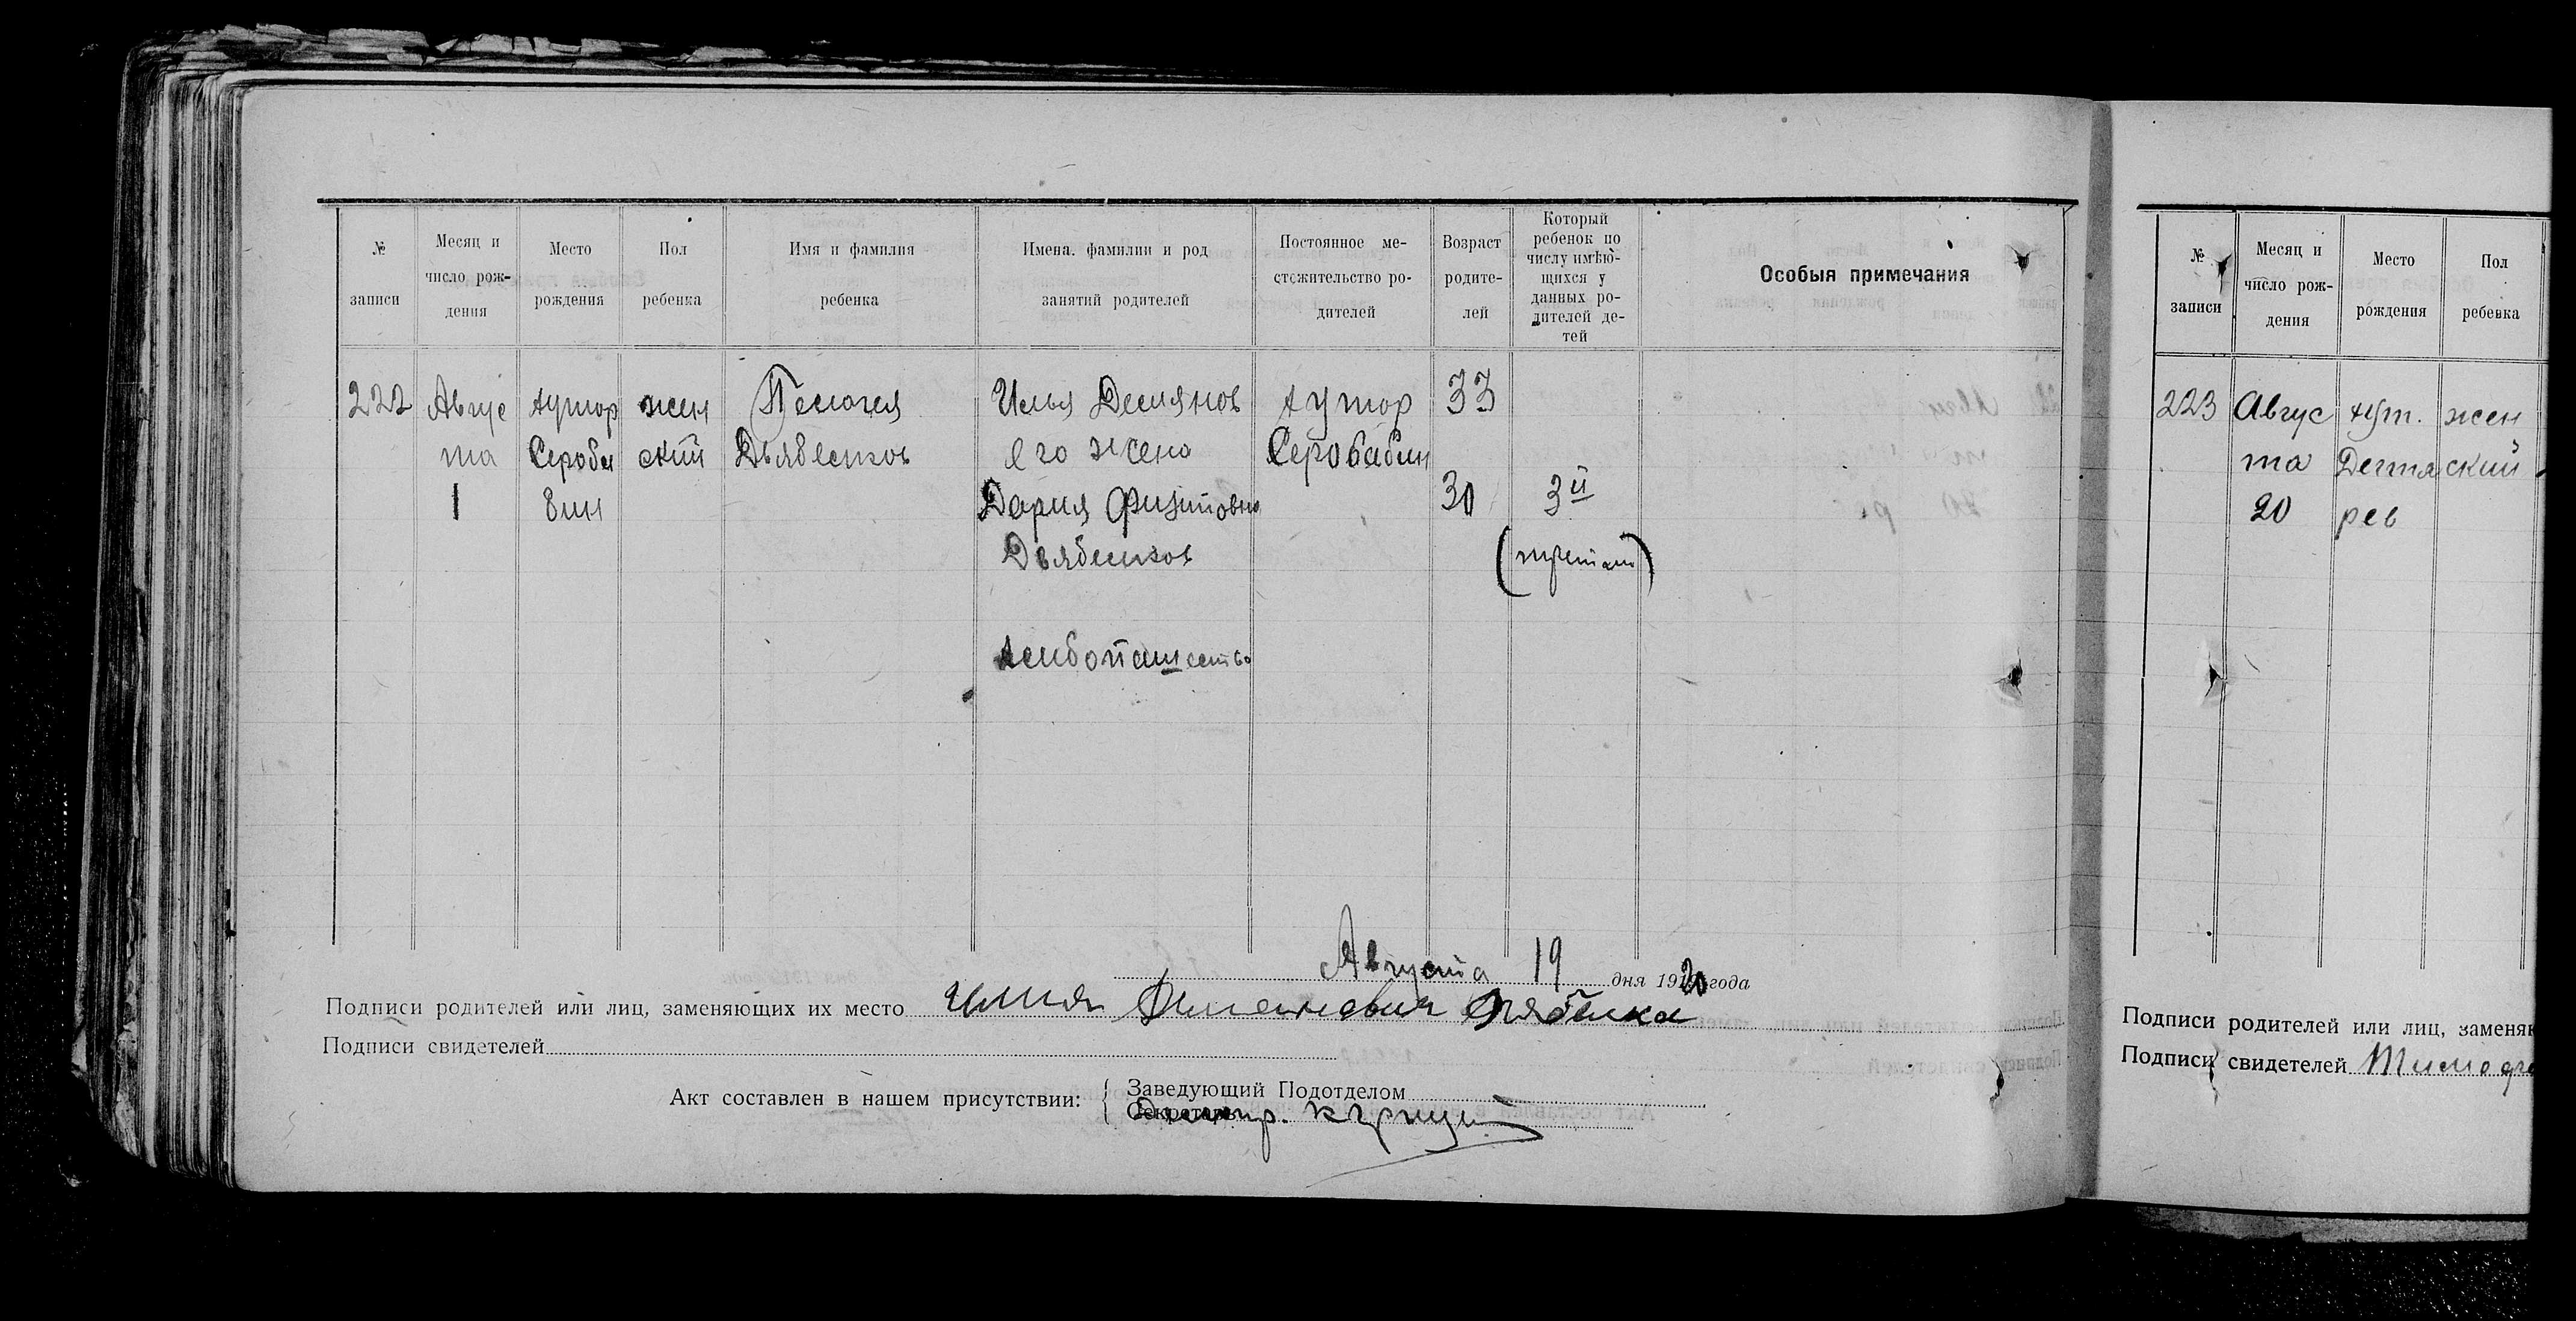 № записи
Месяц и число рож-дения
Место рождения
Пол ребенка
Имя и фамилия ребенка
Имена. фамилии и род занятий родителей
Постоянное ме-стожительство ро-дителей
Возраст родите-лей
Который ребенок по числу имѣю-щихся у данных ро-дителей де-тей
Особыя примечания
222
Авгус
та
1
хутор
Серобо
жен
ский
Пелогея
Илья Демянов
его жена
Дария
хутор
Серобабин
33
30
3й
Августа 19 дня 1920 года
Подписи родителей или лиц, заменяющих их место
Подписи свидетелей
Акт составлен в нашем присутствии:
Заведующий Подотделом
Секретарь
№ записи
Месяц и число рож-дения
Место рождения
Пол ребенка
223
Авгус
та
20
хут.
Дегтя
рев
жен
ский
Подписи родителей или лиц, заменяю
Подписи свидетелей